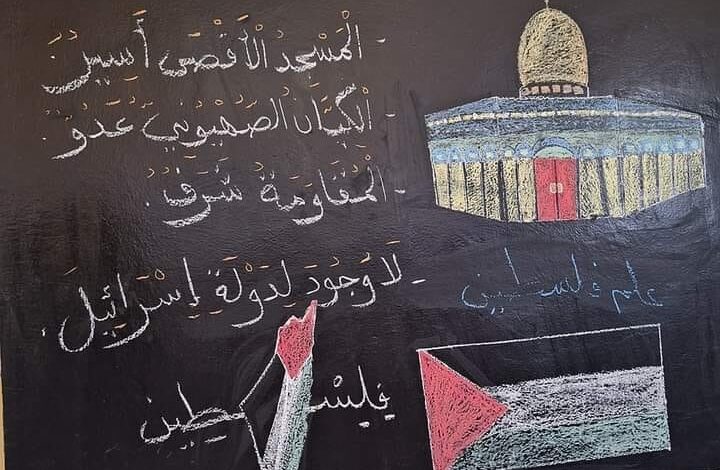 - الْمَسْجِدُ الْأَقْصَى أَسِيرٌ.
- الْكِيَانُ الصِّهْيُونِيُّ عَدُوٌّ.
- الْمُقَاوَمَةُ شَرَفٌ.
- لَا وُجُودَ لِدَوْلَةِ إِسْرَائِيلَ.
علم فلسطين
فلسطين